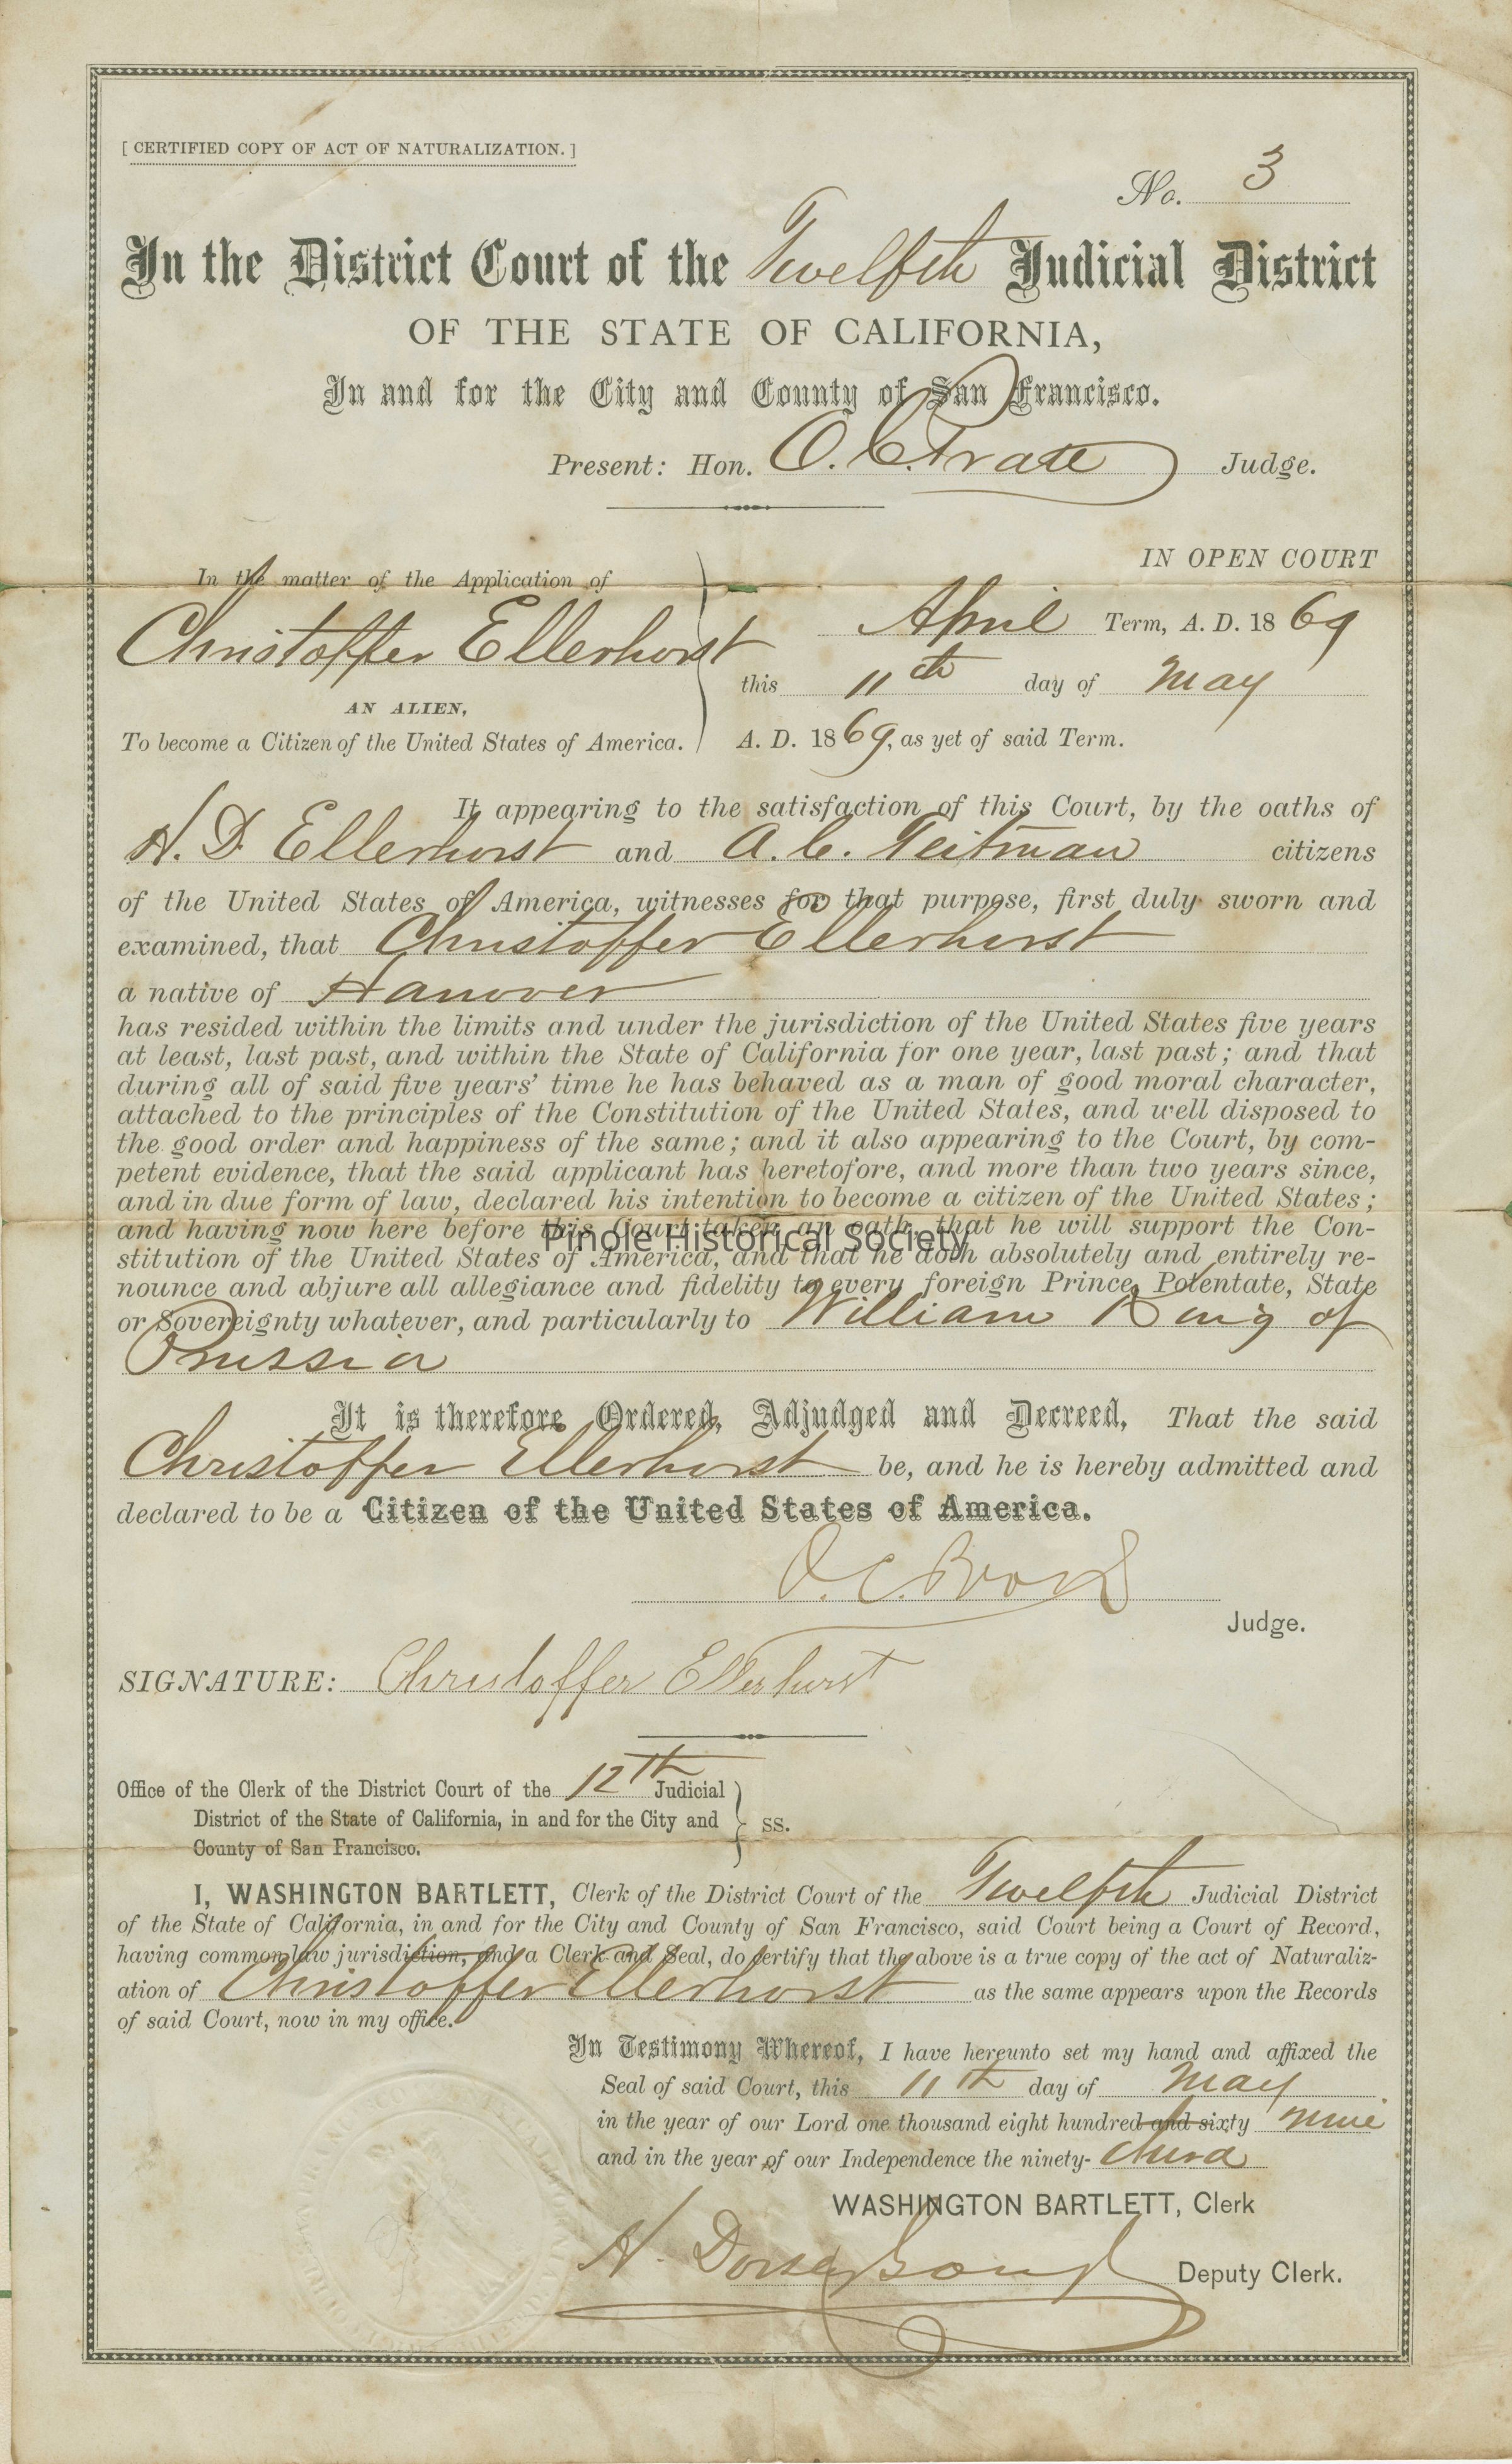 [ CERTIFIED COPY OF ACT OF NATURALIZATION. ]
No. 3
In the District Court of the Twelfth Judicial District
OF THE STATE OF CALIFORNIA,
In and for the City and County of San Francisco.
Present: Hon. O. C. Pratt Judge.
IN OPEN COURT
In the matter of the Application of
Christoffer Ellerhorst
AN ALIEN,
To become a Citizen of the United States of America.
April Term, A. D. 1869
this 11th day of May
A. D. 1869, as yet of said Term.
It appearing to the satisfaction of this Court, by the oaths of
H. D. Ellerhorst and A. C. citizens
of the United States of America, witnesses for that purpose, first duly sworn and
examined, that Christoffer Ellerhorst
a native of Hanover
has resided within the limits and under the jurisdiction of the United States five years
at least, last past, and within the State of California for one year, last past; and that
during all of said five years' time he has behaved as a man of good moral character,
attached to the principles of the Constitution of the United States, and well disposed to
the good order and happiness of the same; and it also appearing to the Court, by com-
petent evidence, that the said applicant has heretofore, and more than two years since,
and in due form of law, declared his intention to become a citizen of the United States;
and having now here before this Court taken an oath, that he will support the Con-
Pinole Historical Society
stitution of the United States of America, and that he doth absolutely and entirely re-
nounce and abjure all allegiance and fidelity to every foreign Prince, Potentate, State
or Sovereignty whatever, and particularly to William King of
Prussia
It is therefore Ordered, Adjudged and Decreed, That the said
Christoffer Ellerhorst be, and he is hereby admitted and
declared to be a Citizen of the United States of America.
O. C. Pratt
Judge.
SIGNATURE: Christoffer Ellerhorst
Office of the Clerk of the District Court of the 12th Judicial
District of the State of California, in and for the City and
County of San Francisco.
ss.
I, WASHINGTON BARTLETT, Clerk of the District Court of the Twelfth Judicial District
of the State of California, in and for the City and County of San Francisco, said Court being a Court of Record,
having common law jurisdiction, and a Clerk and Seal, do certify that the above is a true copy of the act of Naturaliz-
ation of Christoffer Ellerhorst as the same appears upon the Records
of said Court, now in my office.
In Testimony Whereof, I have hereunto set my hand and affixed the
Seal of said Court, this 11th day of May
in the year of our Lord one thousand eight hundred and sixty nine
and in the year of our Independence the ninety-third
WASHINGTON BARTLETT, Clerk
H. Deputy Clerk.